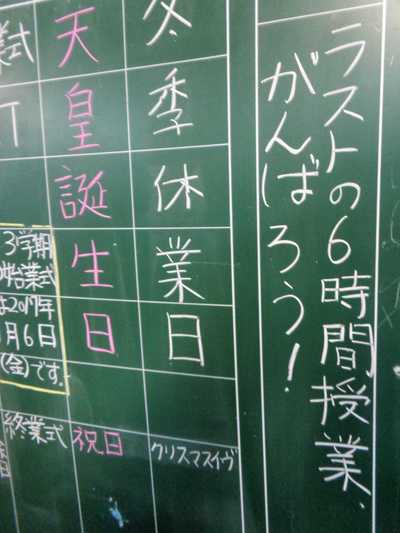 ラストの6時間授業、
がんばろう！
冬季休業日
クリスマスイヴ
天皇誕生日
祝日
業式
終業式
3学期
始業式
は2017年
1月6日
(金)です。